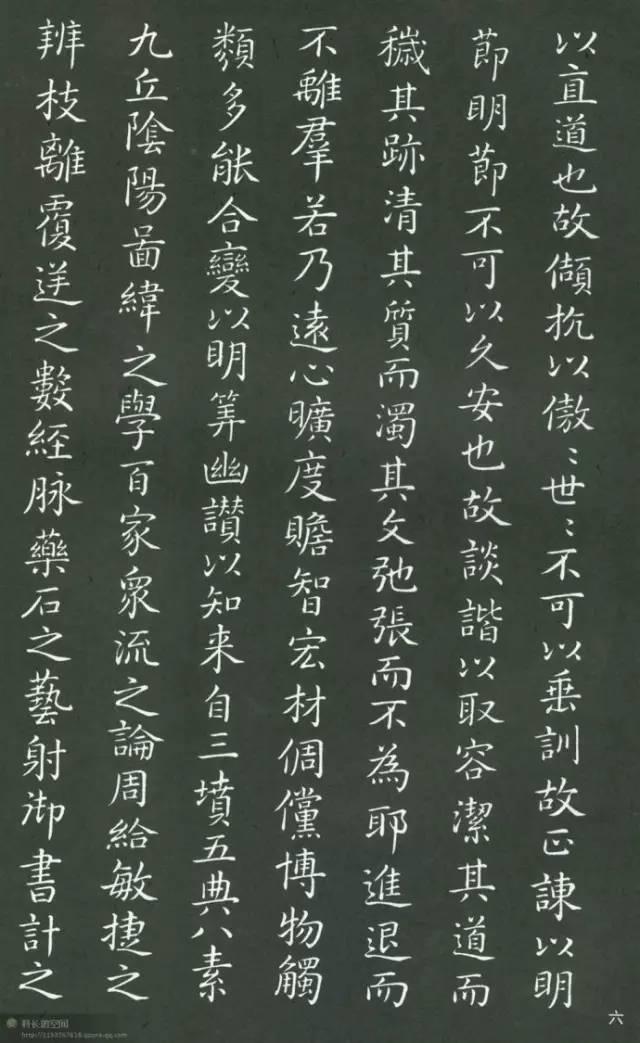 以直道也故傾抗以傲〻世〻不可以垂訓故正諫以明
節明節不可以久安也故談諧以取容潔其道而
穢其跡清其質而濁其文弛張而不為耶進退而
不離羣若乃遠心曠度贍智宏材倜儻博物觸
類多能合變以明筭幽讃以知来自三墳五典八素
九丘陰陽啚緯之學百家衆流之論周給敏捷之
辨枝離覆逆之數經脉藥石之藝射御書計之
六
科长的空间